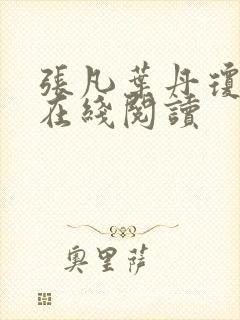 張凡葉丹瓊
在綫閱讀
奧里薩